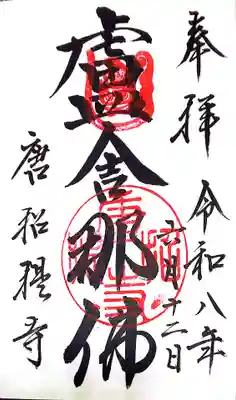 奉拜
令和八年
六月十二日
盧舍那佛
唐招提寺